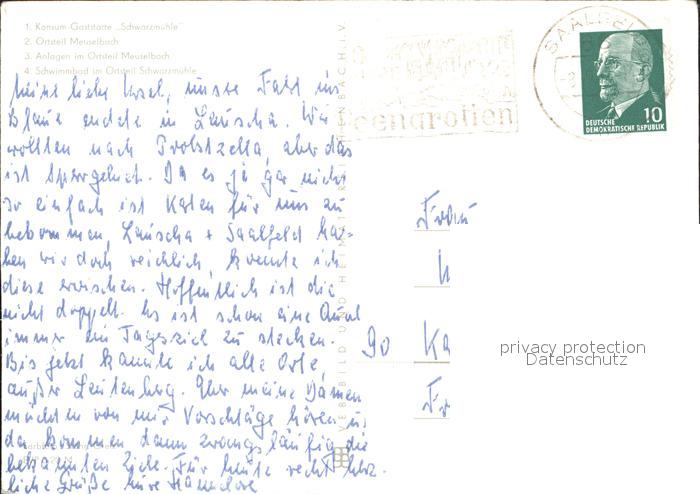 1. Konsum-Gaststätte „Schwarzmühle"
2. Ortsteil Meuselbach
3. Anlagen im Ortsteil Meuselbach
4. Schwimmbad im Ortsteil Schwarzmühle
Meine liebe Ursel, unsre Fahrt ins
Blaue endete in Lauscha. Wir
wollten nach Probstzella, aber das
ist Sperrgebiet. Da es ja gar nicht
so einfach ist Karten für uns zu
bekommen, Lauscha + Saalfeld ha-
ben wir doch reichlich, konnte ich
diese erwischen. Hoffentlich ist die
nicht doppelt. Es ist schon eine Qual
immer ein Tagesziel zu stecken.
Bis jetzt kannte ich alle Orte,
außer Leutenberg. Aber meine Damen
möchten von mir Vorschläge hören u.
da kommen dann zwangsläufig die
bekannten Ziele. Für heute recht herz-
liche Grüße Eure Hannelore
SAALFELD
Feengrotten
10
DEUTSCHE
DEMOKRATISCHE REPUBLIK
VERLAG BILD UND HEIMAT REICHENBACH I. V.
Frau
90 Ka
Fr
privacy protection
Datenschutz